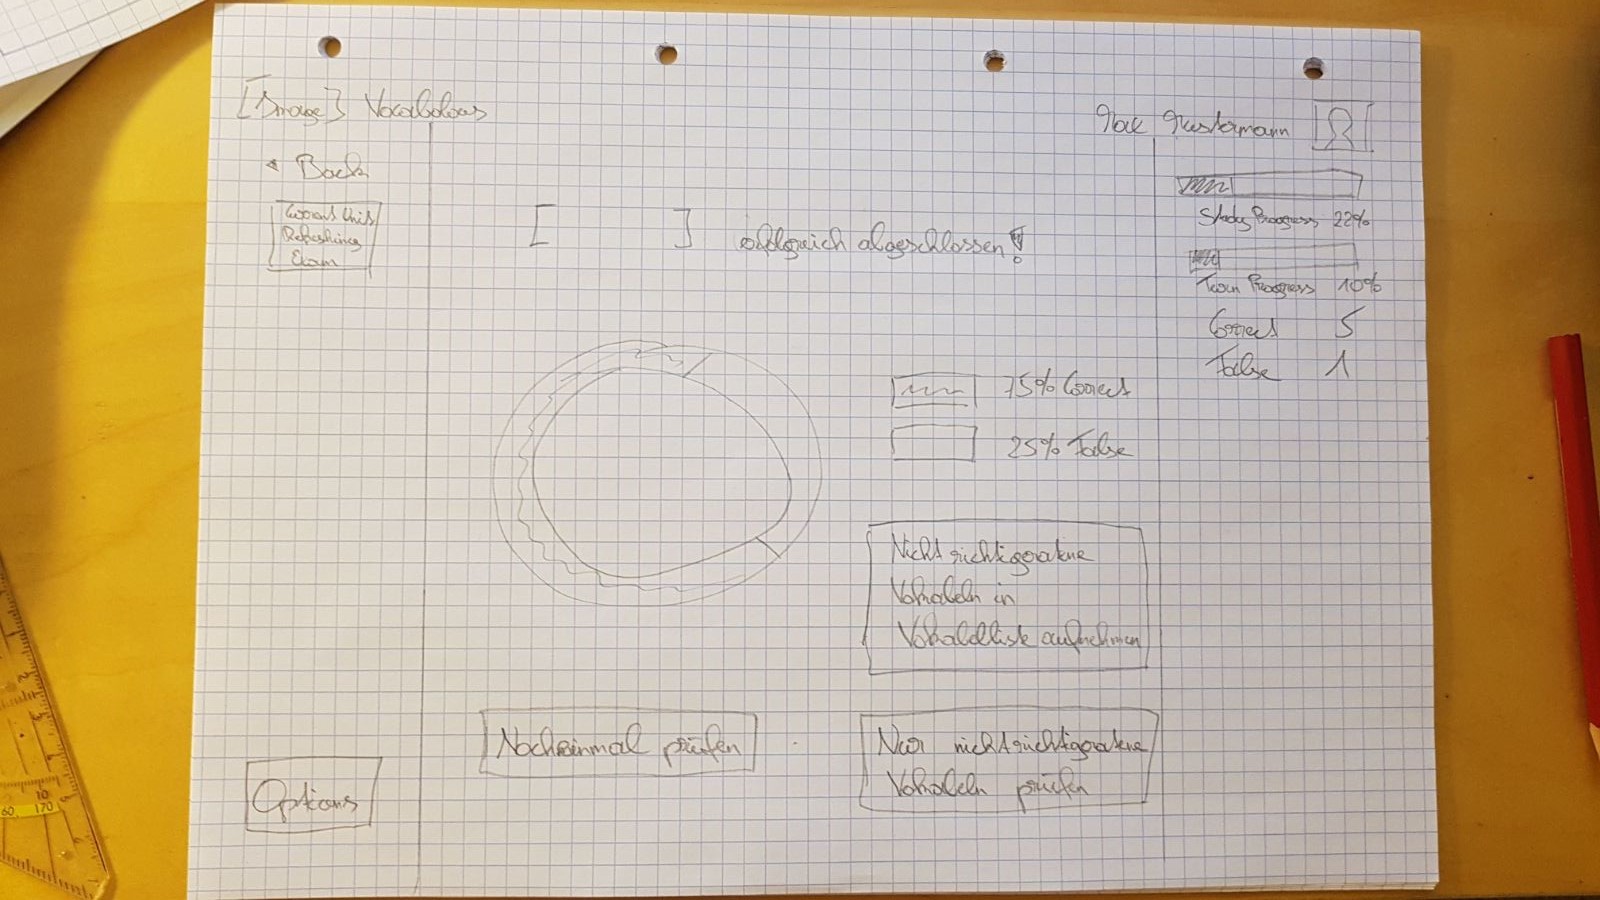 [Image] Vocabulous
Max Mustermann
Back
Current Unit
Refreshing
Exam
[ ] erfolgreich abgeschlossen!
Study Progress 22%
Turn Progress 10%
Correct 5
False 1
75% Correct
25% False
Nicht richtig geratene
Vokabeln in
Vokabelliste aufnehmen
Nocheinmal prüfen
Nur nicht richtig geratene
Vokabeln prüfen
Options
10
60 170